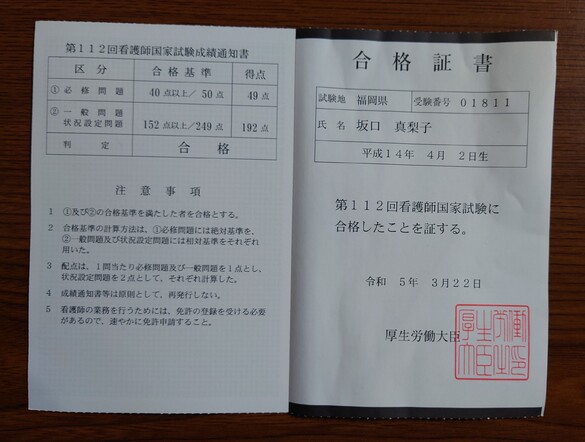 第１１２回看護師国家試験成績通知書
区分 合格基準 得点
①必修問題 40点以上／50点 49点
②一般問題
状況設定問題 152点以上／249点 192点
判定 合格
注意事項
1 ①及び②の合格基準を満たした者を合格とする。
2 合格基準の計算方法は、①必修問題には絶対基準を、
②一般問題及び状況設定問題には相対基準をそれぞれ
用いた。
3 配点は、1問当たり必修問題及び一般問題を1点とし、
状況設定問題を2点として、それぞれ計算した。
4 成績通知書等は原則として、再発行しない。
5 看護師の業務を行うためには、免許の登録を受ける必要
があるので、速やかに免許申請すること。
合格証書
試験地 福岡県 受験番号 01811
氏名 坂口 真梨子
平成14年 4月 2日生
第１１２回看護師国家試験に
合格したことを証する。
令和 5年 3月22日
厚生労働大臣
厚生労働大臣之印